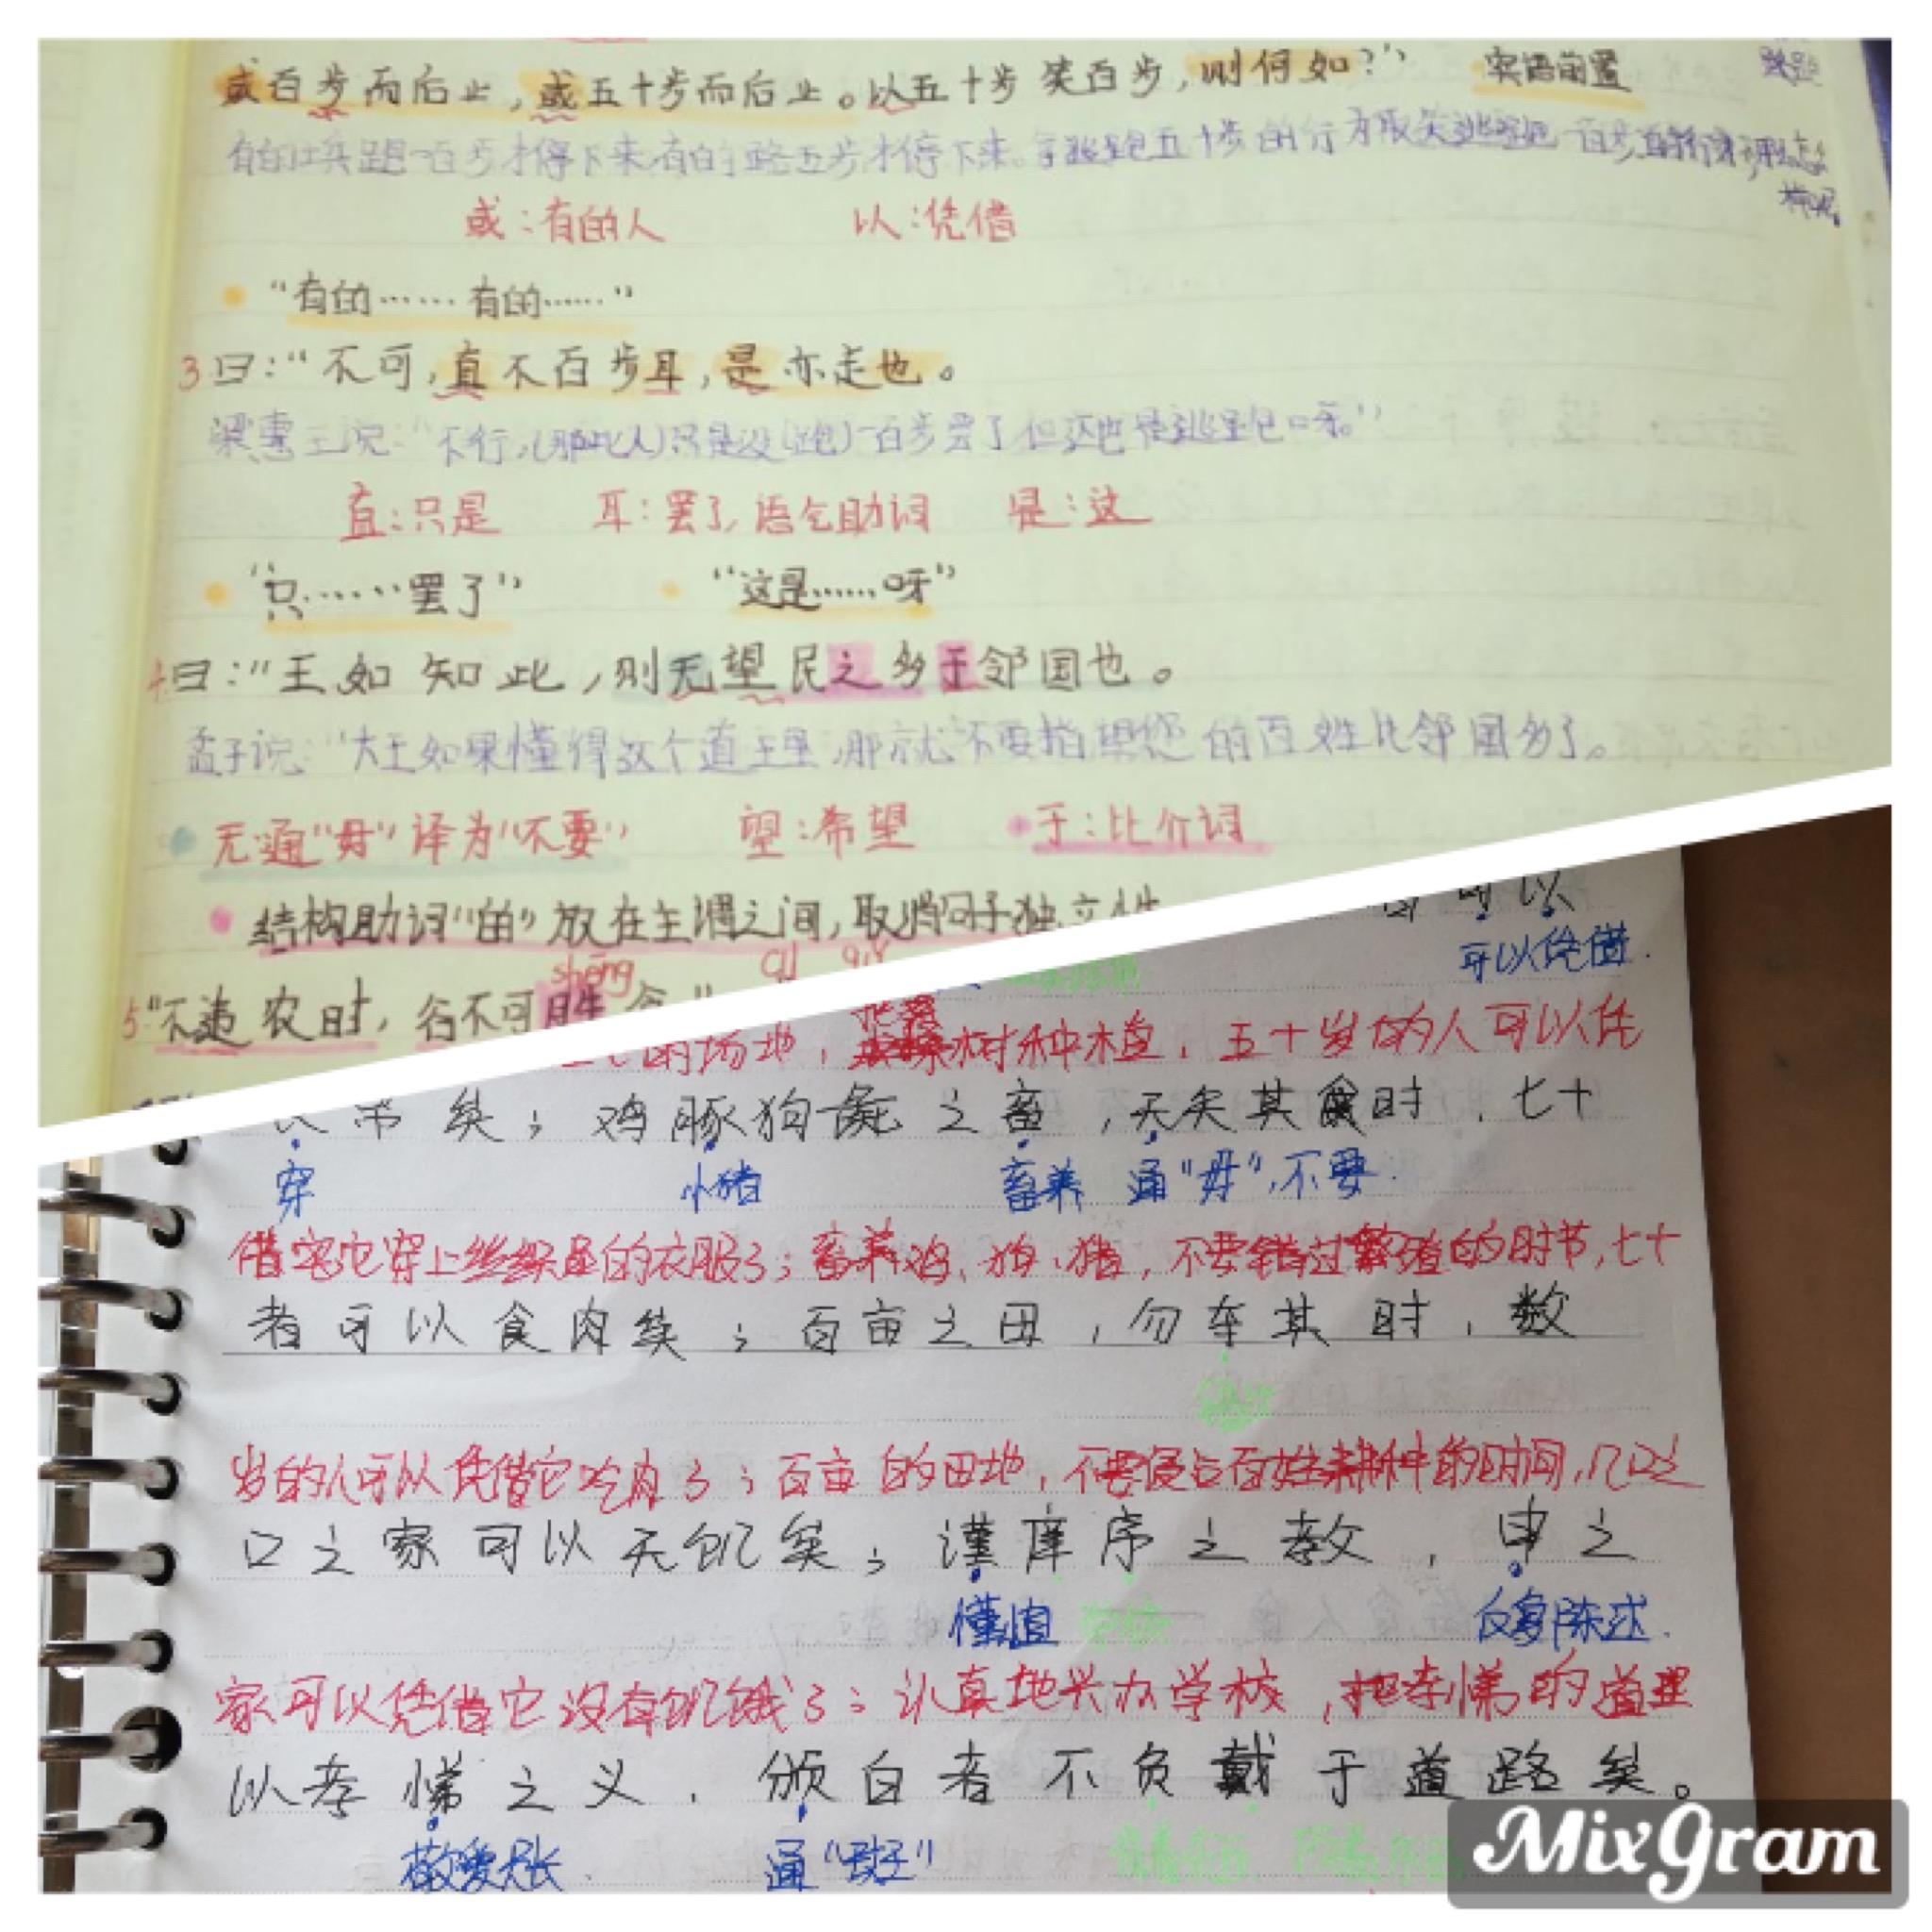 或百步而后止，或五十步而后止。以五十步笑百步，则何如？” 宾语前置
或：有的人 以：凭借
“有的……有的……”
3 曰：“不可，直不百步耳，是亦走也。
梁惠王说：“不行，(那些人)只是没(跑)一百步罢了但这也是逃跑呀。”
直：只是 耳：罢了，语气助词 是：这
“只……罢了” “这是……呀”
4 曰：“王如知此，则无望民之多于邻国也。
孟子说：“大王如果懂得这个道理，那就不要指望您的百姓比邻国多了。
无通“毋”译为“不要” 望：希望 于：比介词
结构助词“的”放在主谓之间，取消句子独立性
shēng
5 “不违农时，谷不可胜
可以
可以凭借.
的场地，桑树种植，五十岁的人可以凭
帛矣；鸡豚狗彘之畜，无失其食时，七十
穿 小猪 畜养 通“毋”，不要.
借它穿上丝织品的衣服了；畜养鸡、狗、猪，不要错过繁殖的时节，七十
者可以食肉矣；百亩之田，勿夺其时，数
岁的人可以凭借它吃肉了；百亩的田地，不要侵占百姓耕种的时间，几口之
口之家可以无饥矣；谨庠序之教，申之
谨慎 反复陈述.
家可以凭借它没有饥饿了；认真地兴办学校，把孝悌的道理
以孝悌之义，颁白者不负戴于道路矣。
敬爱兄长. 通“斑”
MixGram